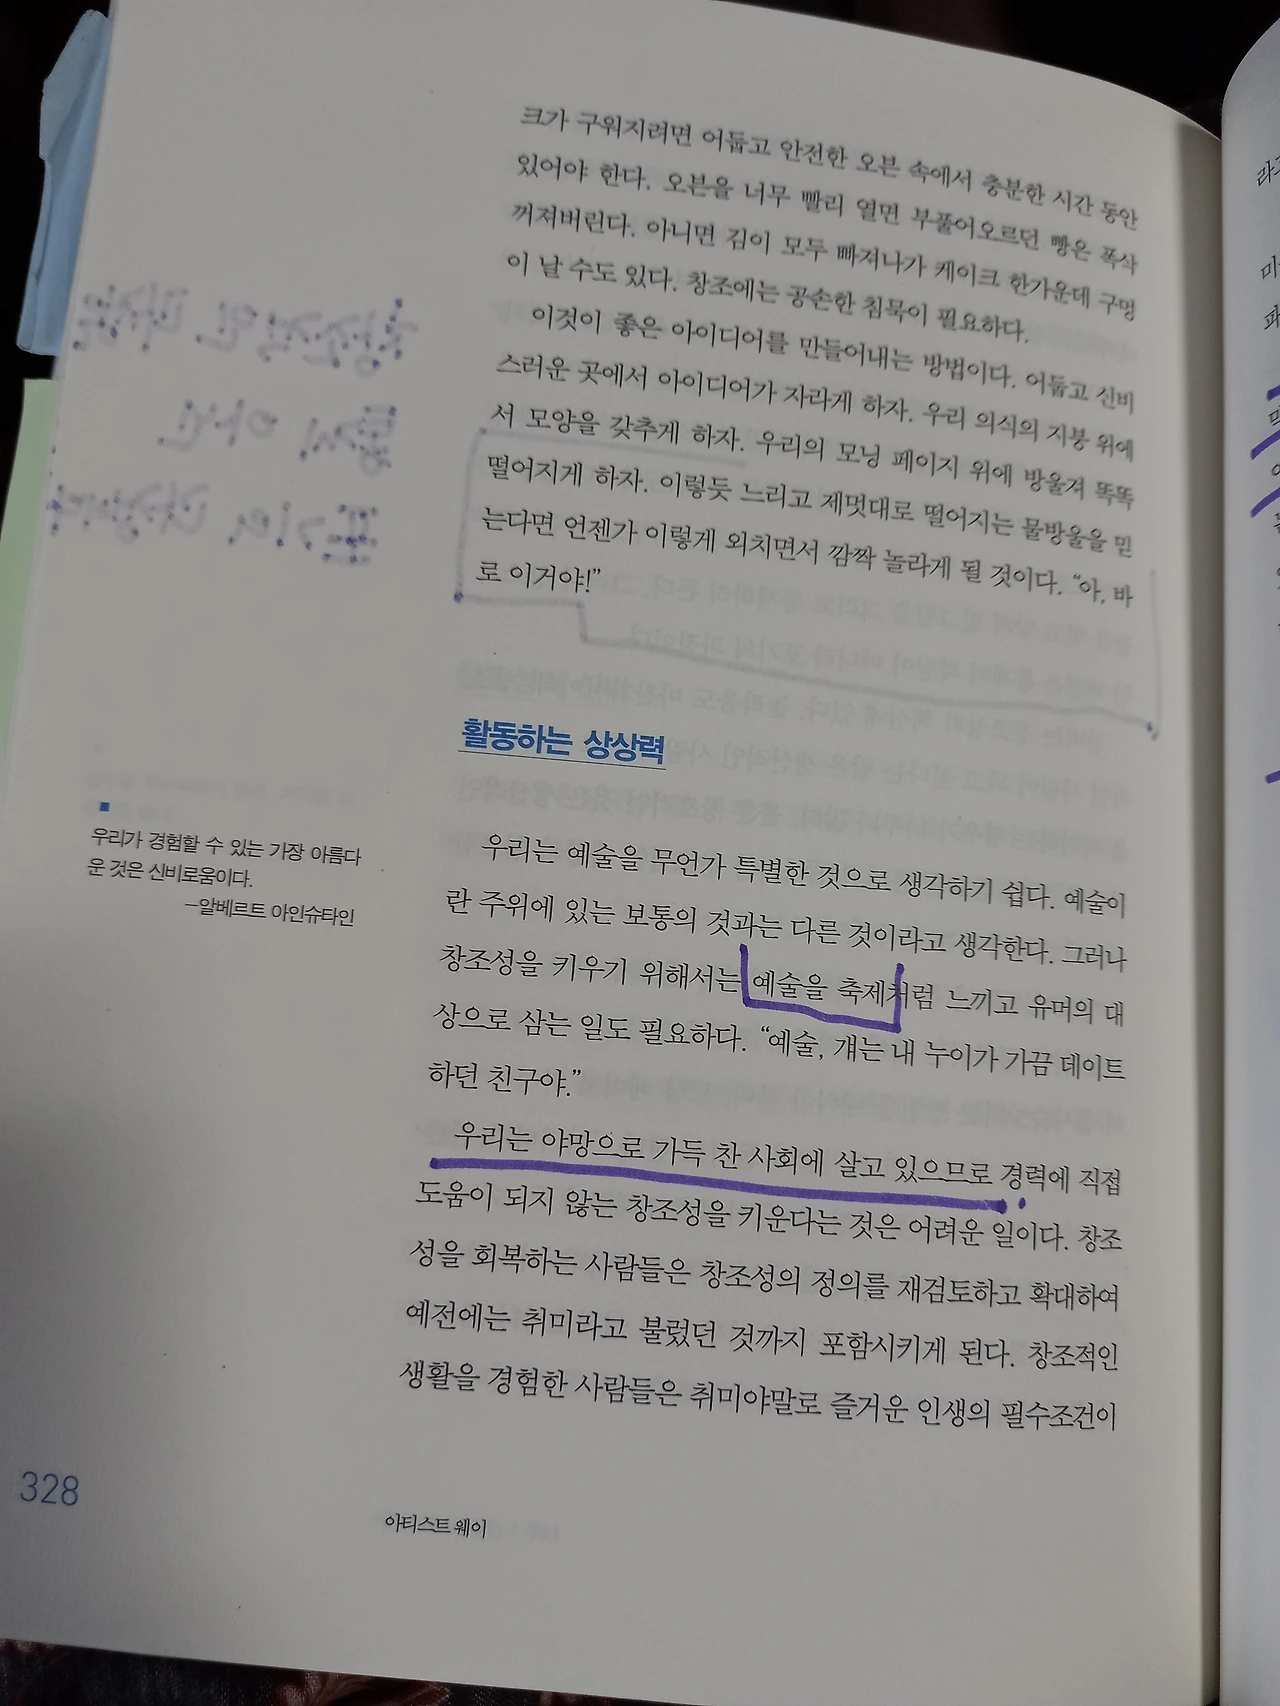 크가 구워지려면 어둡고 안전한 오븐 속에서 충분한 시간 동안
있어야 한다. 오븐을 너무 빨리 열면 부풀어오르던 빵은 폭삭
꺼져버린다. 아니면 김이 모두 빠져나가 케이크 한가운데 구멍
이 날 수도 있다. 창조에는 공손한 침묵이 필요하다.
이것이 좋은 아이디어를 만들어내는 방법이다. 어둡고 신비
스러운 곳에서 아이디어가 자라게 하자. 우리 의식의 지붕 위에
서 모양을 갖추게 하자. 우리의 모닝 페이지 위에 방울져 똑똑
떨어지게 하자. 이렇듯 느리고 제멋대로 떨어지는 물방울을 믿
는다면 언젠가 이렇게 외치면서 깜짝 놀라게 될 것이다. “아, 바
로 이거야!”
활동하는 상상력
우리가 경험할 수 있는 가장 아름다
운 것은 신비로움이다.
–알베르트 아인슈타인
우리는 예술을 무언가 특별한 것으로 생각하기 쉽다. 예술이
란 주위에 있는 보통의 것과는 다른 것이라고 생각한다. 그러나
창조성을 키우기 위해서는 예술을 축제처럼 느끼고 유머의 대
상으로 삼는 일도 필요하다. “예술, 걔는 내 누이가 가끔 데이트
하던 친구야.”
우리는 야망으로 가득 찬 사회에 살고 있으므로 경력에 직접
도움이 되지 않는 창조성을 키운다는 것은 어려운 일이다. 창조
성을 회복하는 사람들은 창조성의 정의를 재검토하고 확대하여
예전에는 취미라고 불렀던 것까지 포함시키게 된다. 창조적인
생활을 경험한 사람들은 취미야말로 즐거운 인생의 필수조건이
328
아티스트 웨이